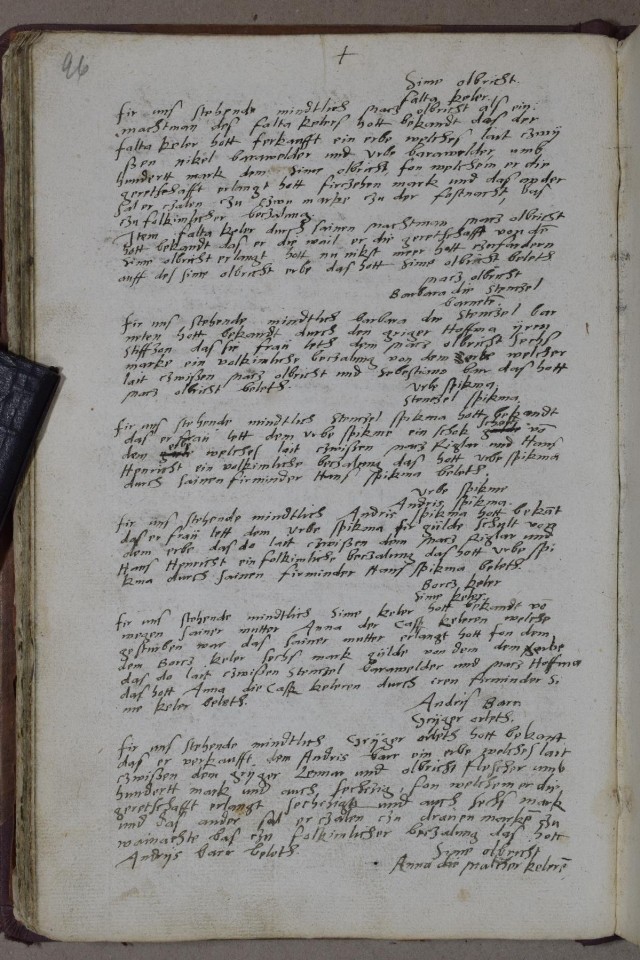 96
+
Sime olbricht.
falta keler.
fir uns stehende mindtlich marcz olbricht als ein
machtman des falta kelers hott bekandt das der
falta keler hott ferkaufft ein erbe welches lait czwi
ßen nikel barawelder und Urbe barawelder umb
hundertt mark dem Sime olbricht, fon welchem er die
geretschafft erlangt hott firczehen mark und das ander
sal er czalen czu czwu marke czu der fasnacht, bas
czu folkimlicher beczalung.
Item falta keler durch sainen machtman marcz olbricht
hott bekandt das er die wail er die geretschafft von dem
Sime olbricht erlangt hott nu nikst meer hott czu fordern
auff des sime olbricht erbe das hott Sime olbricht beleth
marcz olbricht
Barbara die Stenczel
barneten.
fir uns stehende mindtlich barbara die Stenczel bar
neten hott bekandt durch den griger Hoffma iren
stiffson das die frau leth dem marcz olbricht sechs
marke ein volkimliche beczalung von dem erbe welcher
lait czwissen marcz olbricht und Sebestiano bar das hott
marcz olbricht beleth.
Urbe spikma.
Stenczel spikma.
fir uns stehende mindtlich Stenczel spikma hott bekandt
das er frau lett dem urbe spikme ein schok schollt von
dem erbe welches lait czwissen marcz Riglar und Hans
Henricht ein volkimliche beczalung das hott urbe spikma
durch sainen firminder Hans spikma beleth.
Urbe spikme
Andris spikma.
fir uns stehende mindtlich Andris spikma hott bekant
das er frau lett dem urbe spikma fir gulde schollt von
dem erbe das do lait czwissen dem marcz Riglar und
Hans Henricht ein folkimliche beczalung das hott urbe spi
kma durch sainen firminder Hans spikma beleth.
Borcz keler
Sime keler.
fir uns stehende mindtlich Sime keler hott bekandt von
wegen sainer mutter Anna der Casp keleren welche
gestorben war das sainer mutter erlangt hott fon dem
dem Borcz keler sechs mark gulde von dem dem erbe
das do lait czwissen Stenczel barawelder und marcz Hoffma
das hott Anna die Casp keleren durch eren firminder Si
me keler beleth.
Andris Barn
Griger orleth.
fir uns stehende mindtlich Griger orleth hott bekant
das er verkaufft dem Andris bare ein erbe welches lait
czwissen dem griger Lemar und olbricht flescher umb
hundertt mark und auch sechczig, fon welchem er die
geretschafft erlangt sechczigk und auch sechs mark
und das ander sal er czalen czu draien marken czu
wainachte bas czu folkimlicher beczalung das hott
Andris barr beleth.
Sime olbricht
Anna die malcher keleren